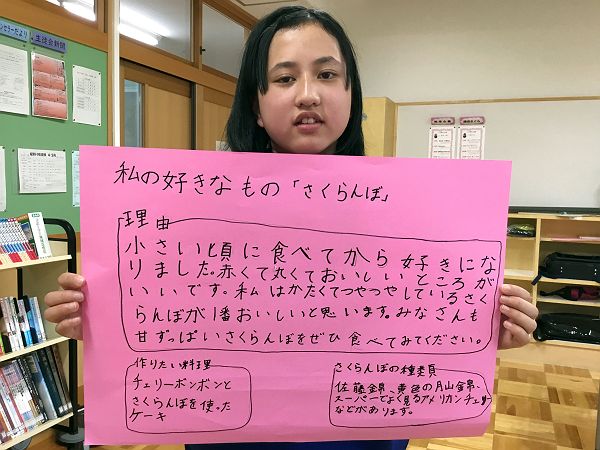 生徒会新聞
私の好きなもの「さくらんぼ」
理由
小さい頃に食べてから好きにな
りました。赤くて丸くておいしいところが
いいです。私はかたくてつやつやしているさく
らんぼが1番おいしいと思います。みなさんも
甘ずっぱいさくらんぼをぜひ食べてみてください。
作りたい料理
チェリーボンボンと
さくらんぼを使った
ケーキ
さくらんぼの種類
佐藤錦、黄色の月山錦、
スーパーでよく見るアメリカンチェリー
などがあります。